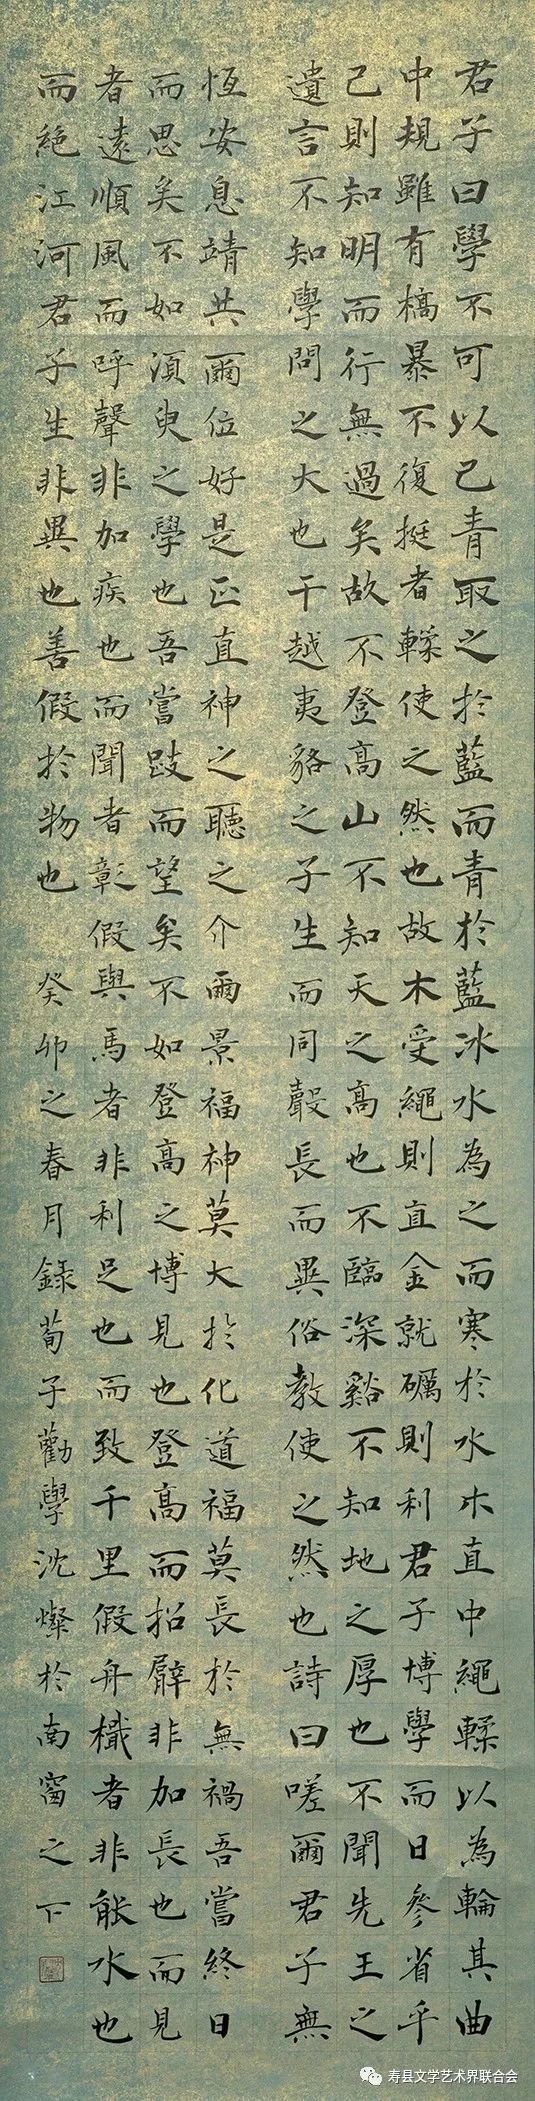 君子曰學不可以已青取之於藍而青於藍冰水為之而寒於水木直中繩輮以為輪其曲
中規雖有槁暴不復挺者輮使之然也故木受繩則直金就礪則利君子博學而日參省乎
己則知明而行無過矣故不登高山不知天之高也不臨深谿不知地之厚也不聞先王之
遺言不知學問之大也干越夷貉之子生而同聲長而異俗教使之然也詩曰嗟爾君子無
恆安息靖共爾位好是正直神之聽之介爾景福神莫大於化道福莫長於無禍吾嘗終日
而思矣不如須臾之學也吾嘗跂而望矣不如登高之博見也登高而招臂非加長也而見
者遠順風而呼聲非加疾也而聞者彰假輿馬者非利足也而致千里假舟檝者非能水也
而絕江河君子生非異也善假於物也 癸卯之春月錄荀子勸學沈燦於南窗之下
寿县文学艺术界联合会